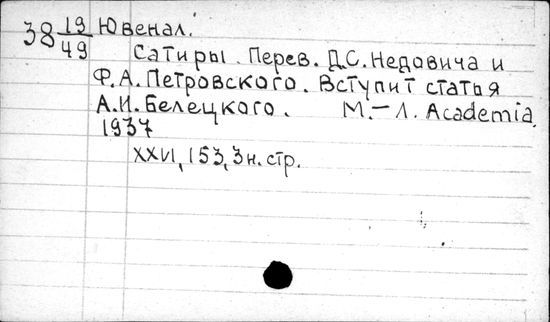 38 19/49 Ювенал.
Сатиры. Перев. Д.С. Недовича и
Ф.А. Петровского. Вступит статья
А.И. Белецкого. М.-Л. Academia.
1937
XXVI, 153, 3 н. стр.